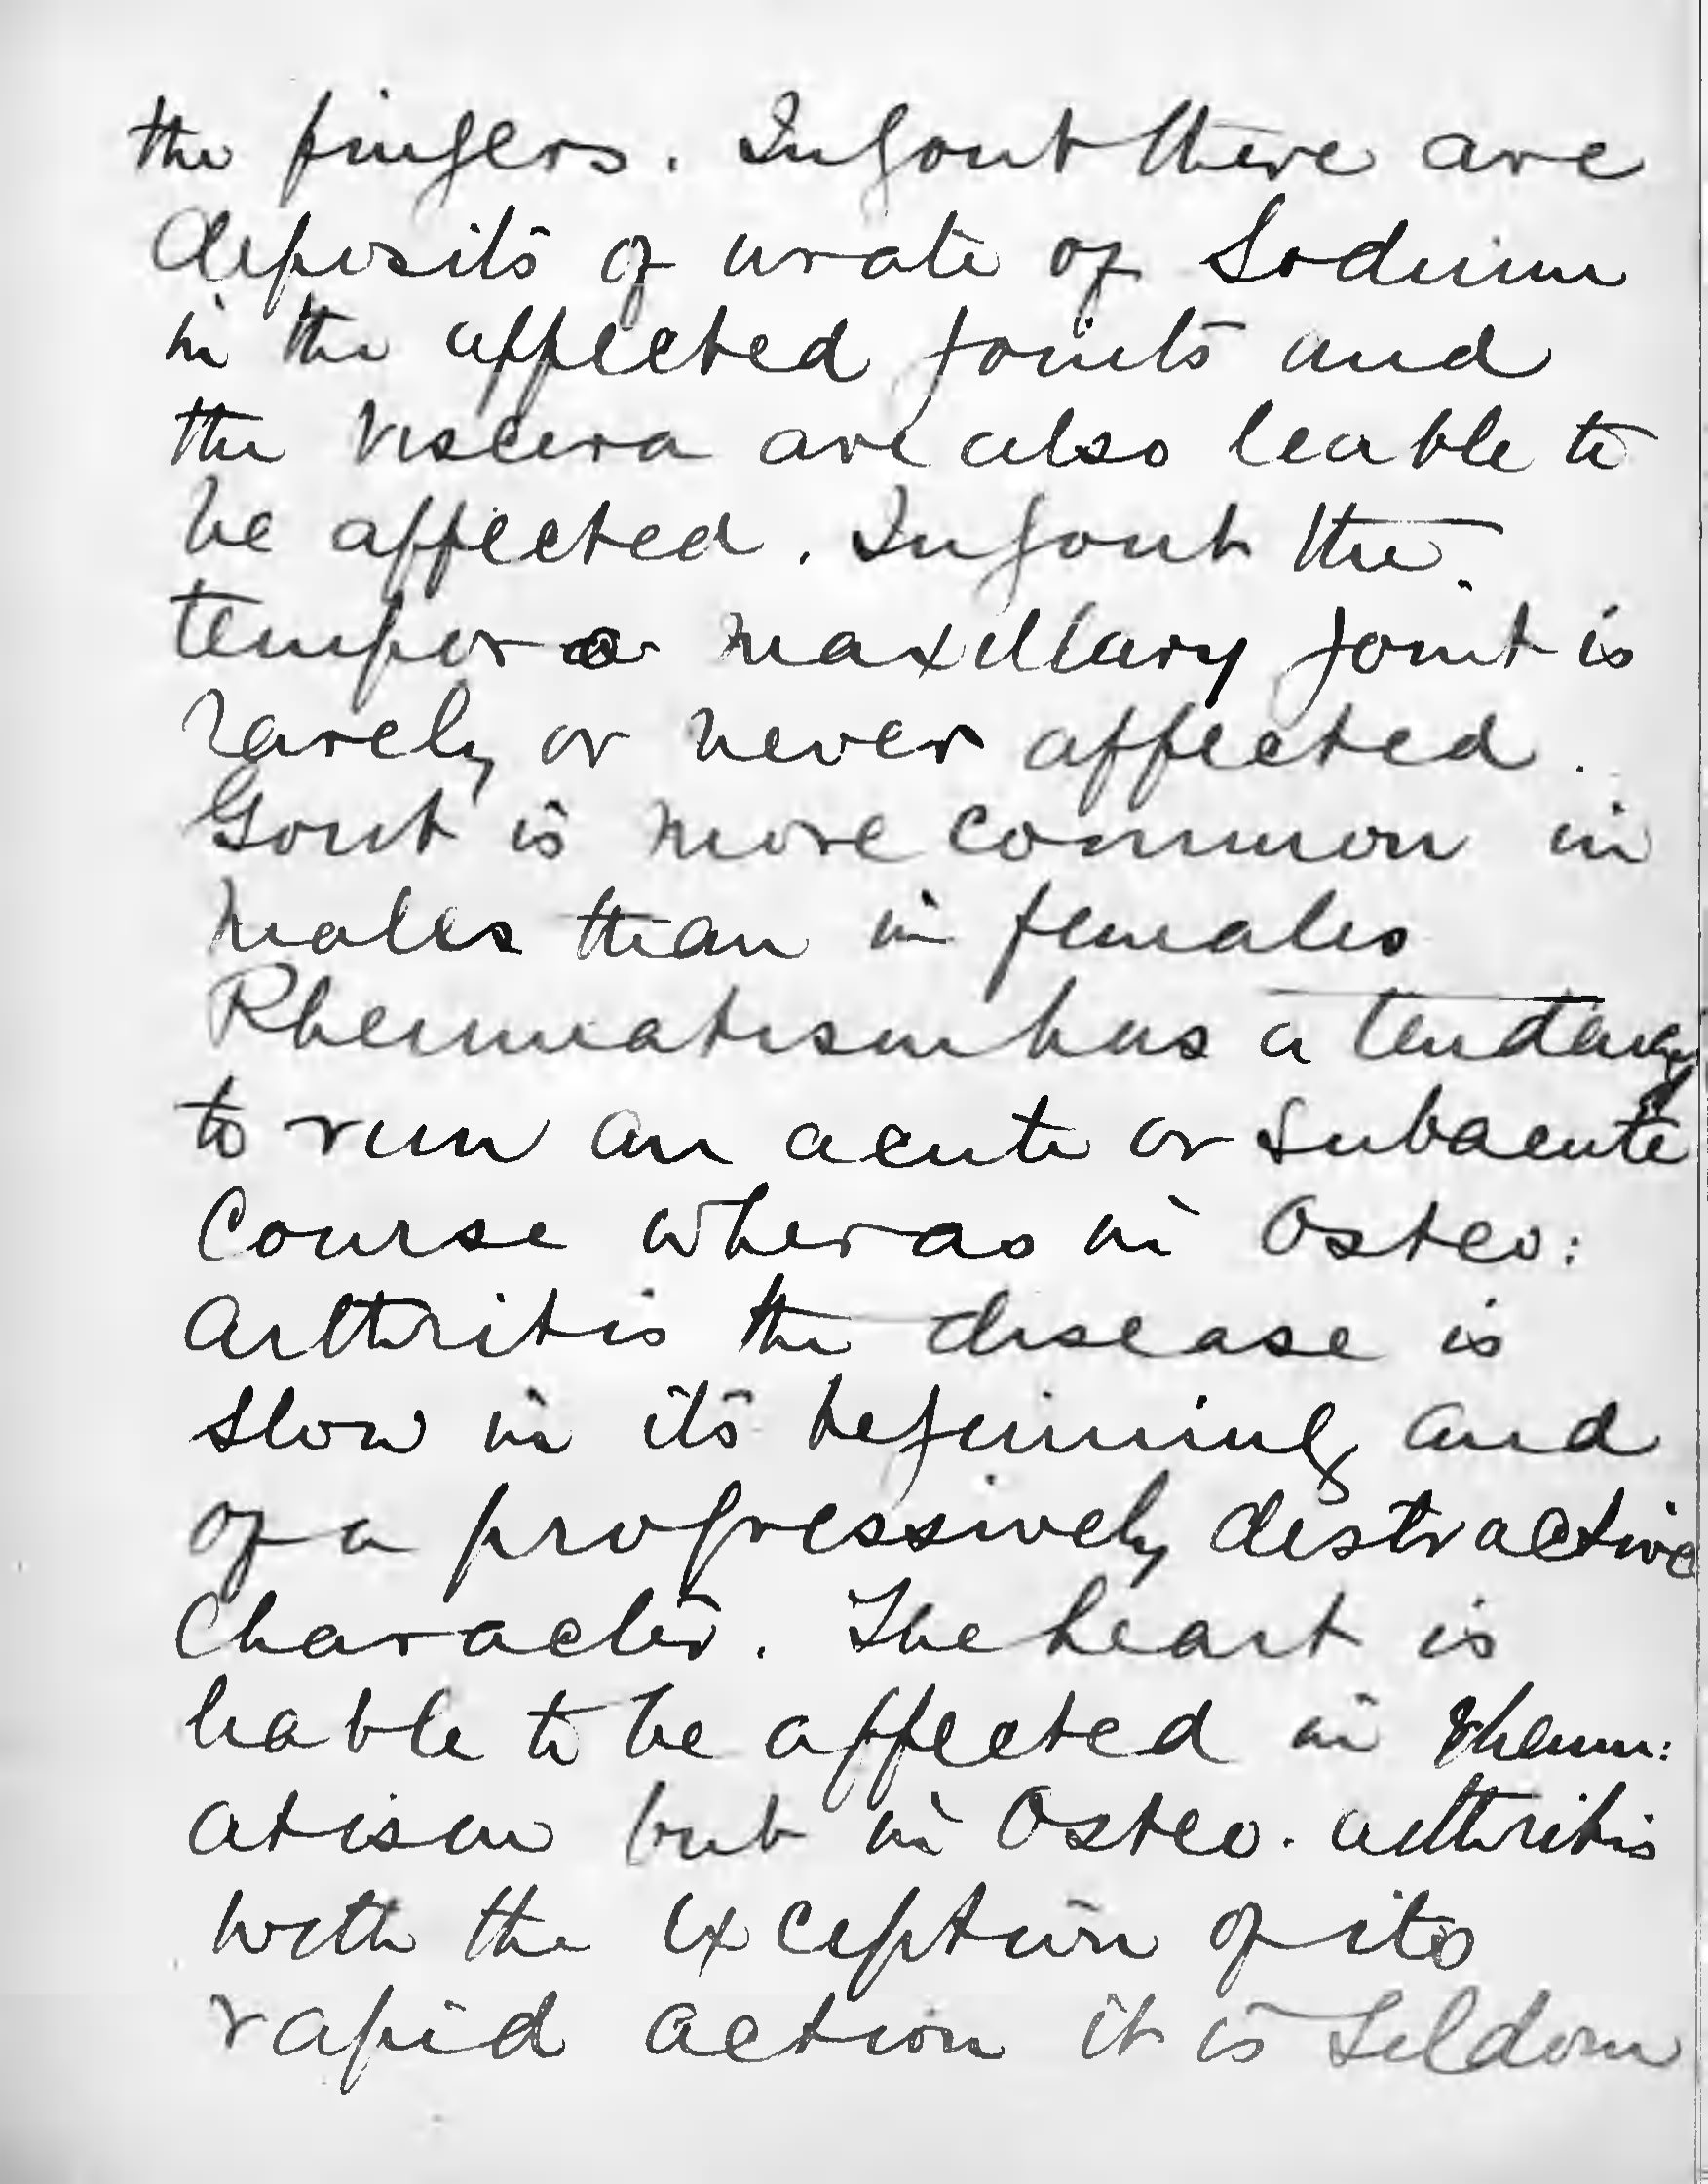 the fingers. In gout there are
deposits of urate of Sodium
in the affected joints and
the viscera are also leable to
be affected. In gout the
temporo maxillary joint is
rarely or never affected.
Gout is more common in
males than in females
Rheumatism has a tendency
to run an acute or subacute
Course wheras in Osteo:
Arthritis the disease is
slow in its beginning and
of a progressively distractive
Character. The heart is
liable to be affected in rheum:
atism but in Osteo. arthritis
with the exception of its
rapid action it is seldom